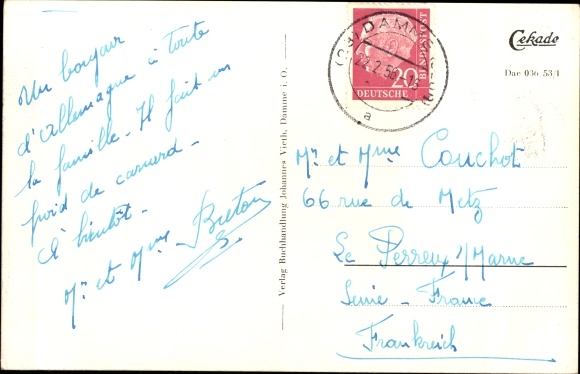 Un bonjour
d'Allemagne à toute
la famille - Il fait un
froid de canard -
A bientôt -
Mr et Mme Breton
Verlag Buchhandlung Johannes Vieth, Damme i. O.
DAMME
22.2.56
a
20
DEUTSCHE
BUNDESPOST
Cekade
Dae 036 53/1
Mr et Mme Couchot
66 rue de Metz
Le Perreux s/Marne
Seine - France
Frankreich